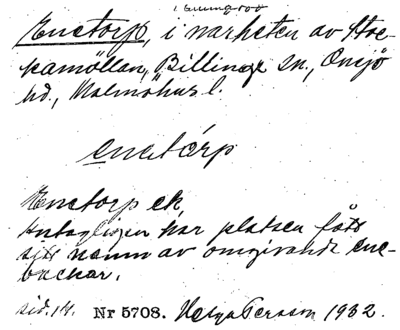 Enetorp, i närheten av Stoc-
kamöllan, Billinge sn., Onsjö
hd., Malmöhus l.
enetórp
Enetorp ek,
Antagligen har platsen fått
sitt namn av omgivande ene-
backar.
sid. 14. Nr 5708. Helga Persson 1932.